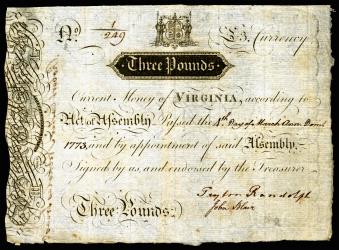 No. 1/249 £3, Currency
Three Pounds
Current Money of VIRGINIA, according to
Act of Assembly Passed the 4th Day of March Anno Domi
1773, and by appointment of said Assembly,
Signed by us, and endorsed by the Treasurer
Peyton Randolph
Three Pounds John Blair